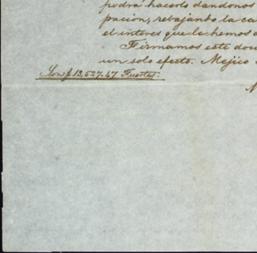 podrá hacerlo dandonos
pacion, rebajando la ca
el interes que le hemos
Firmamos este doc
un solo efecto. Mejico
Son $ 13,627.47 Fuertes.